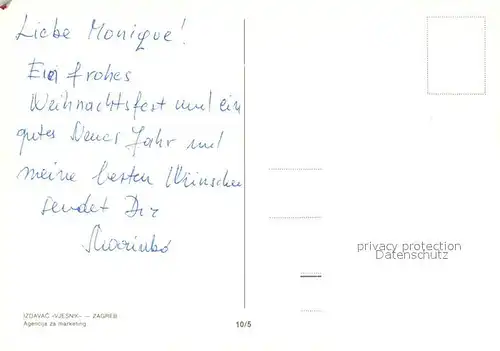 Liebe Monique!
Ein frohes
Weihnachtsfest und ein
gutes Neues Jahr und
meine besten Wünsche
sendet Dir
Marinko
privacy protection
Datenschutz
IZDAVAČ »VJESNIK« — ZAGREB
Agencija za marketing
10/5